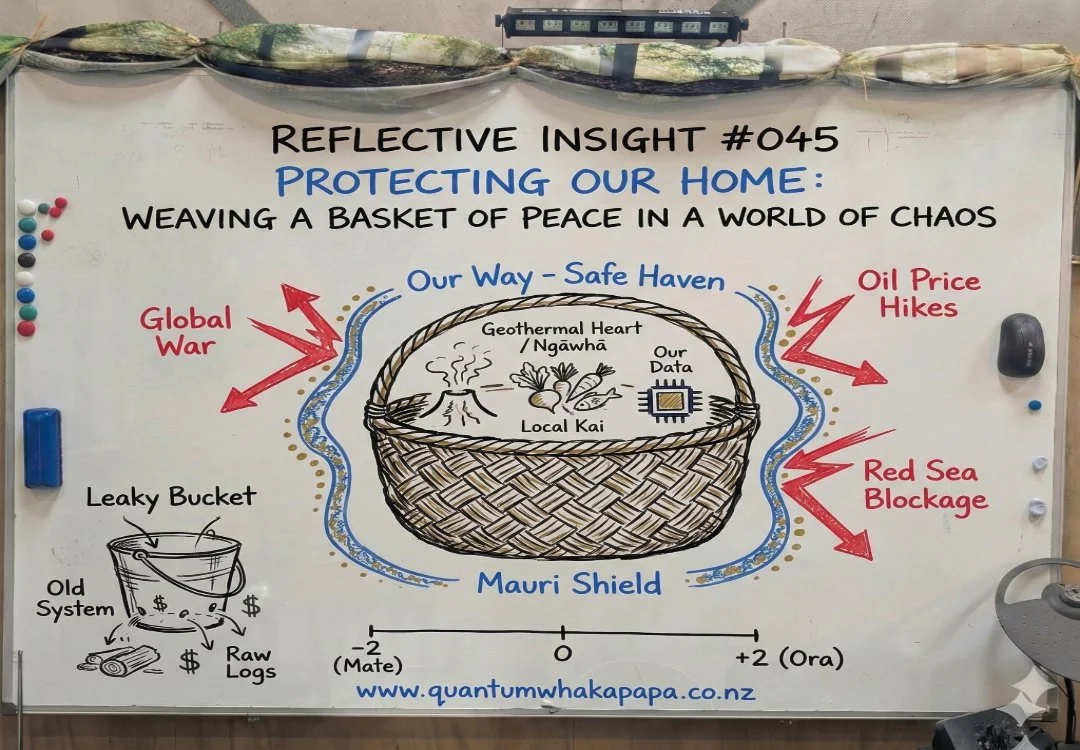 REFLECTIVE INSIGHT #045
PROTECTING OUR HOME:
WEAVING A BASKET OF PEACE IN A WORLD OF CHAOS
Our Way - Safe Haven
Global
War
Oil Price
Hikes
Geothermal Heart
/ Ngāwhā
Our
Data
Local Kai
Red Sea
Blockage
Leaky Bucket
Old
System
$
$
$
Raw
Logs
Mauri Shield
-2
(Mate)
0
+2 (Ora)
www.quantumwhakapapa.co.nz